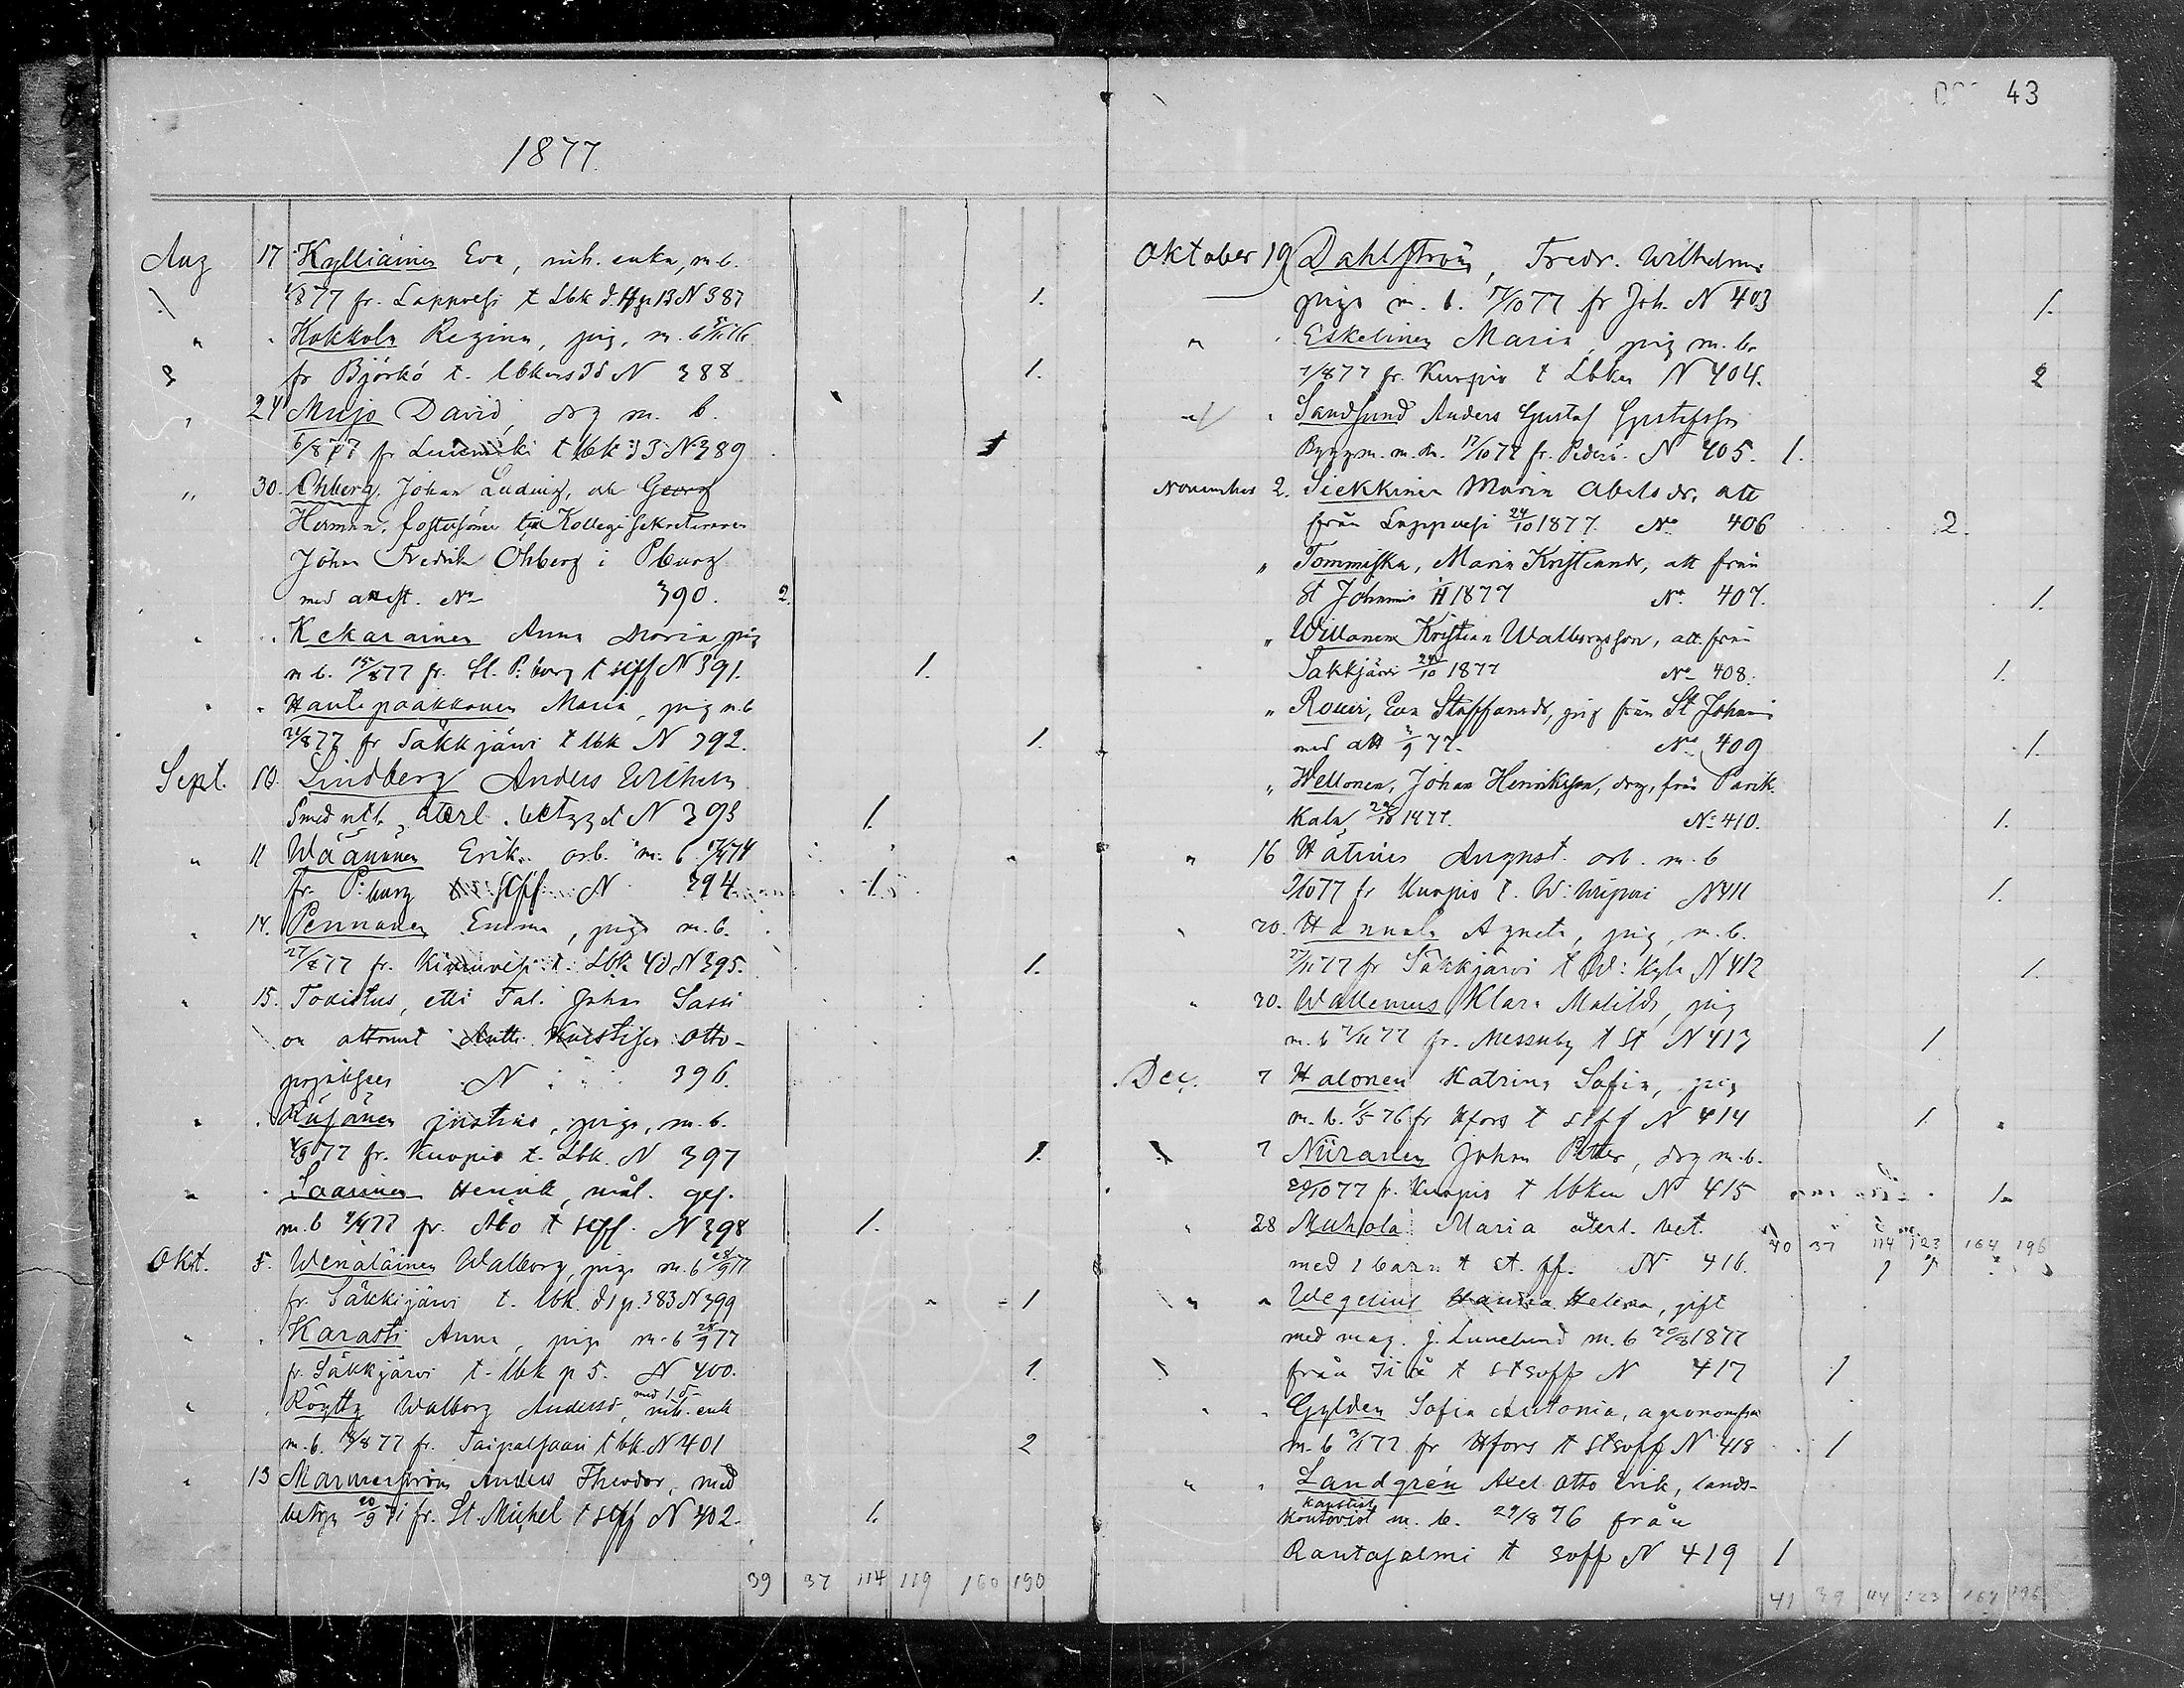 43
1877.
Aug 17 Kylliäinen Eva, enka, m.b.
1/8 77 fr. Lappvesi t Lbk N 387 1.
" " Kokkola Regina, pig, m. b
fr Björkö t. N 388 1.
" 24 Mujo David, drg m. b.
6/8 77 fr t lbk 33 N 389 1
" 30. Öhberg, Johan Ludvig, Georg
Herman, fostersöner till Kollegisekreteraren
Johan Fredrik Öhberg i Pburg
med attest. No 390. 2.
" " Kekarainen Anna Maria pig
m b. 15/8 77 fr. St. P. burg t stff N 391. 1.
" " Hautapaakkanen Maria, pig m.b
fr Säkkjärvi t lbk N 392. 1.
Sept. 10. Lindberg Anders Wilhelm
Smed återl. N 393 1.
" 11 Wäänänen Erik. arb. m. b
fr. P. burg stff N 394 1.
" 14. Pennanen Emma, piga m.b.
27/8 77 fr. t. Lbk 40 N 395. 1.
" 15. Todistus, että Tal. Johan Sassi
on ottanut Antti Otto-
pojakseen N 396.
" " Justina, piga, m.b.
77 fr. Kuopio t. Lbk. N 397 1.
" " Saarinen Henrik, mål. ges.
m. b 77 fr. Åbo t stff. N 398 1.
Okt. 5. Wenäläinen Walborg, piga m. b 28/9 77
fr. Säkkijärvi t. lbk. p. 383 N 399 1
" " Karasti Anna, piga m. b 28/9 77
fr. Säkkjärvi t. lbk p 5. N 400. 1
" " Röytty Walborg Andersd, enk
m. b. 77 fr. Taipalsaari t lbk. N 401 2
" 13 Marmerström Anders Theodor, med
betyg fr. St. Michel t stff N 402. 1.
39 37 114 119 160 190
Oktober 19 Dahlström, Fredr. Wilhelmina
piga m. b. 17/10 77 fr Joh. N 403 1.
" " Eskelinen Maria, pig m. b.
7/8 77 fr. Kuopio t Lbken N 404. 2
" " Sandsund Anders Gustaf Gustafsson
Byggm. m. b. 17/10 77 fr. Pedersö. N 405. 1.
November 2. Siekkinen Maria Abels dr, att
från Lappvesi 24/10 1877. No 406 2.
" Tommiska, Maria Kristiansdr, att från
St Johannis 1877 No 407. 1.
" Willanen Kristian Walborgsson, att. från
Säkkjärvi 24/10 1877 No 408. 1.
" Rouvi, Eva Staffansdr, pig från St Johannis
med att 77. No 409 1.
" Wellonen, Johan Henriksson, drg, från Parik-
kala, 1877. No 410. 1.
" 16 Hätinen August. arb. m. b
77 fr Kuopio t. W: N 411 1.
" 20. Hannula Agneta, pig, m. b.
77 fr Säkkjärvi t W: Kyla N 412 1.
" 20. Wallenius Klara Matilda, pig
m. b 77 fr. Messuby t St N 413 1
Dec. 7 Halonen Katrina Sofia, pig
m. b. 1/5 76 fr Hfors t stff N 414 1.
7 Niiranen Johan Petter, drg m. b.
29/10 77 fr. Kuopio t lbken N 415 1.
" 28 Muhola Maria återl. bet. 40 37 114 123 164 196
med 1 barn t st. ff. N 416. 1 1
" " Wegelius Hanna Helena, gift
med mag. J. Lunelund m. b 1877
från t stsoff N 417 1
" " Gylden Sofia Antonia, agronomfru
m. b 77 fr Hfors t stsoff N 418 1
" " Landgrén Axel Otto Erik, lands-
kanslist
kontorist m. b. 29/8 76 från
Rantasalmi t soff N 419 1
41 39 114 123 164 196